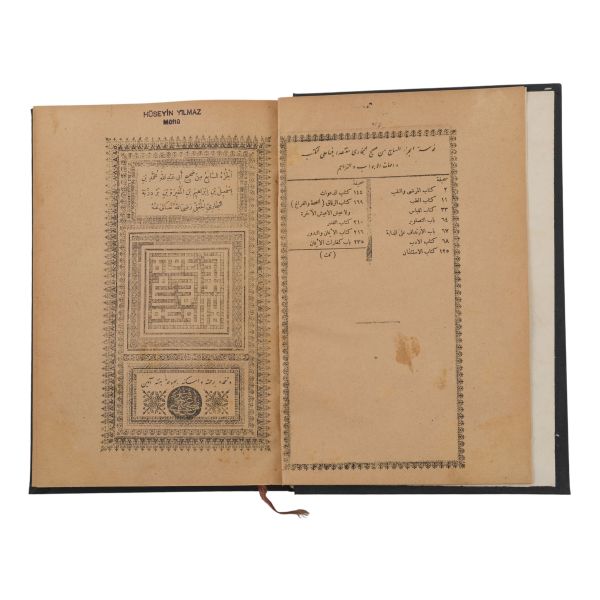 HÜSEYİN YILMAZ
Müftü
الجزء السابع من صحيح أبي عبد الله محمد بن
إسمعيل بن إبراهيم بن المغيرة بن بردزبة
البخاري الجعفي رضي الله تعالى عنه
فهرست الجزء السابع من صحيح البخاري مقتصرا فيها على الكتب
وأمهات الأبواب والتراجم
صحيفة
٢ كتاب المرضى والطب
١١ كتاب الطب
٣٣ كتاب اللباس
٦٤ باب التصاوير
٦٧ باب الارتداف على الدابة
٦٨ كتاب الادب
١٢٥ كتاب الاستئذان
صحيفة
١٤٤ كتاب الدعوات
١٦٩ كتاب الرقاق ( الصحة والفراغ )
ولا عيش الا عيش الآخرة
٢١٠ كتاب القدر
٢١٦ كتاب الأيمان والنذور
٢٣٥ باب كفارات الأيمان
( تمت )